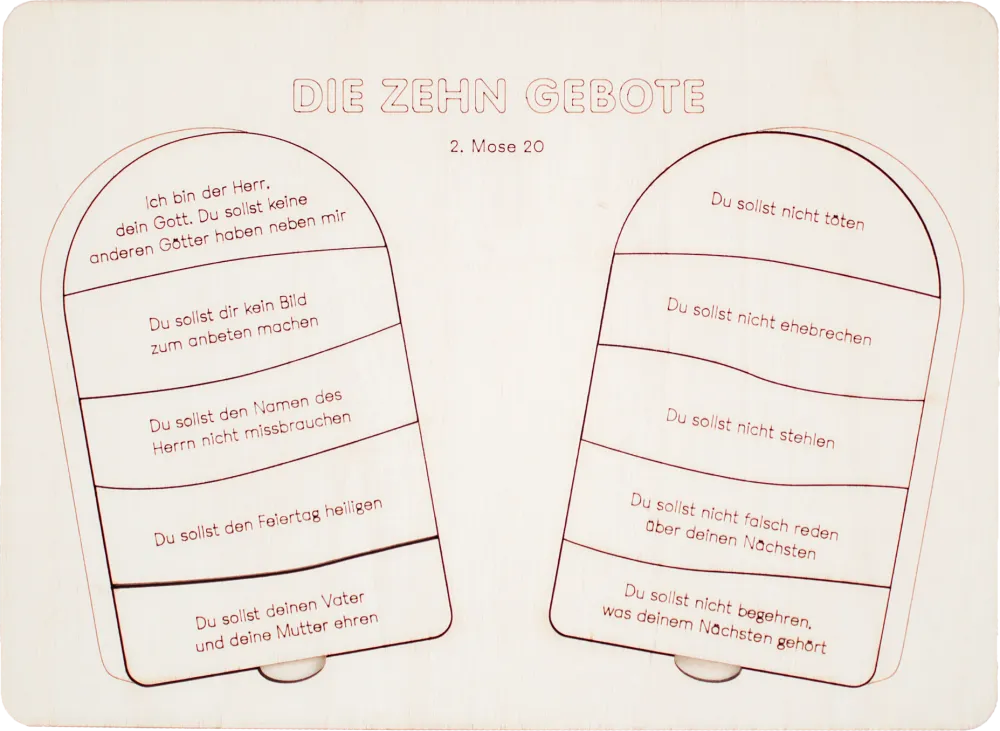 DIE ZEHN GEBOTE
2. Mose 20
Ich bin der Herr,
dein Gott. Du sollst keine
anderen Götter haben neben mir
Du sollst dir kein Bild
zum anbeten machen
Du sollst den Namen des
Herrn nicht missbrauchen
Du sollst den Feiertag heiligen
Du sollst deinen Vater
und deine Mutter ehren
Du sollst nicht töten
Du sollst nicht ehebrechen
Du sollst nicht stehlen
Du sollst nicht falsch reden
über deinen Nächsten
Du sollst nicht begehren,
was deinem Nächsten gehört